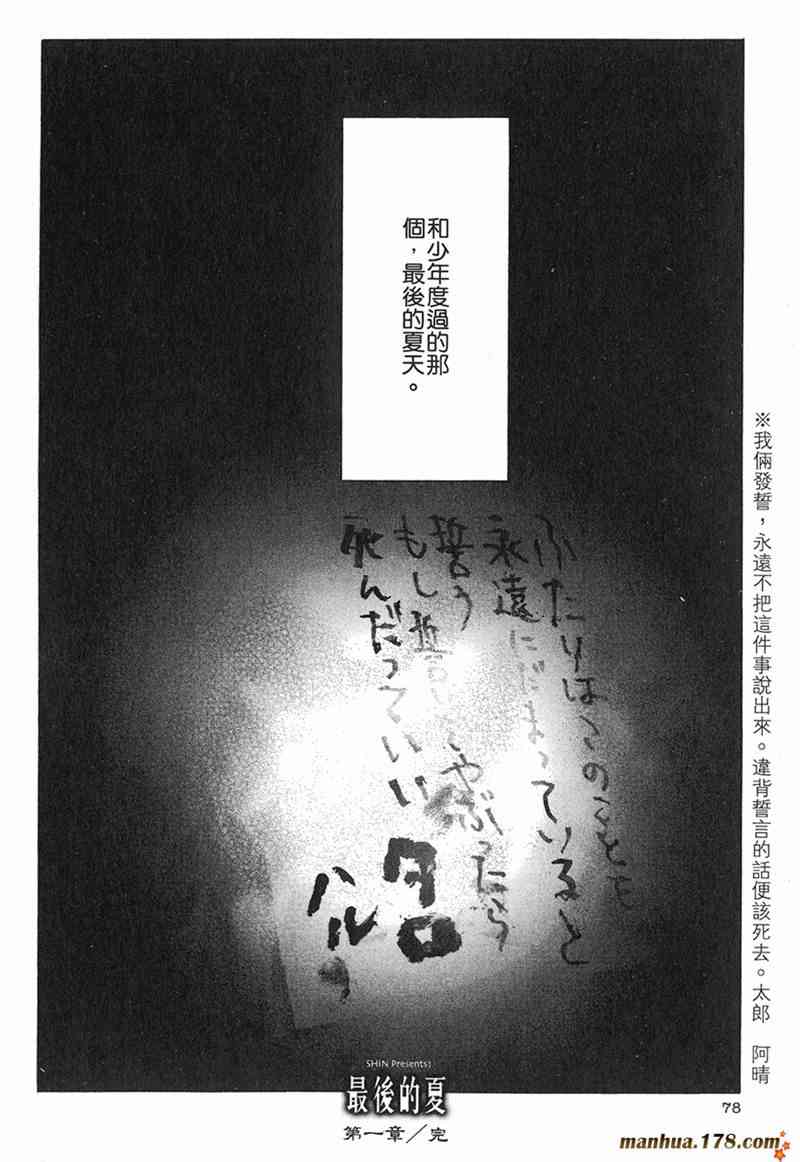 和少年度過的那
個，最後的夏天。
ふたりはこのことを
永遠にだまっていると
誓う
もし誓いをやぶったら
死んだっていい
タロ
ハル
※我倆發誓，永遠不把這件事說出來。違背誓言的話便該死去。太郎　阿晴
SHiN Presents!
最後的夏
第一章／完
78
manhua.178.com